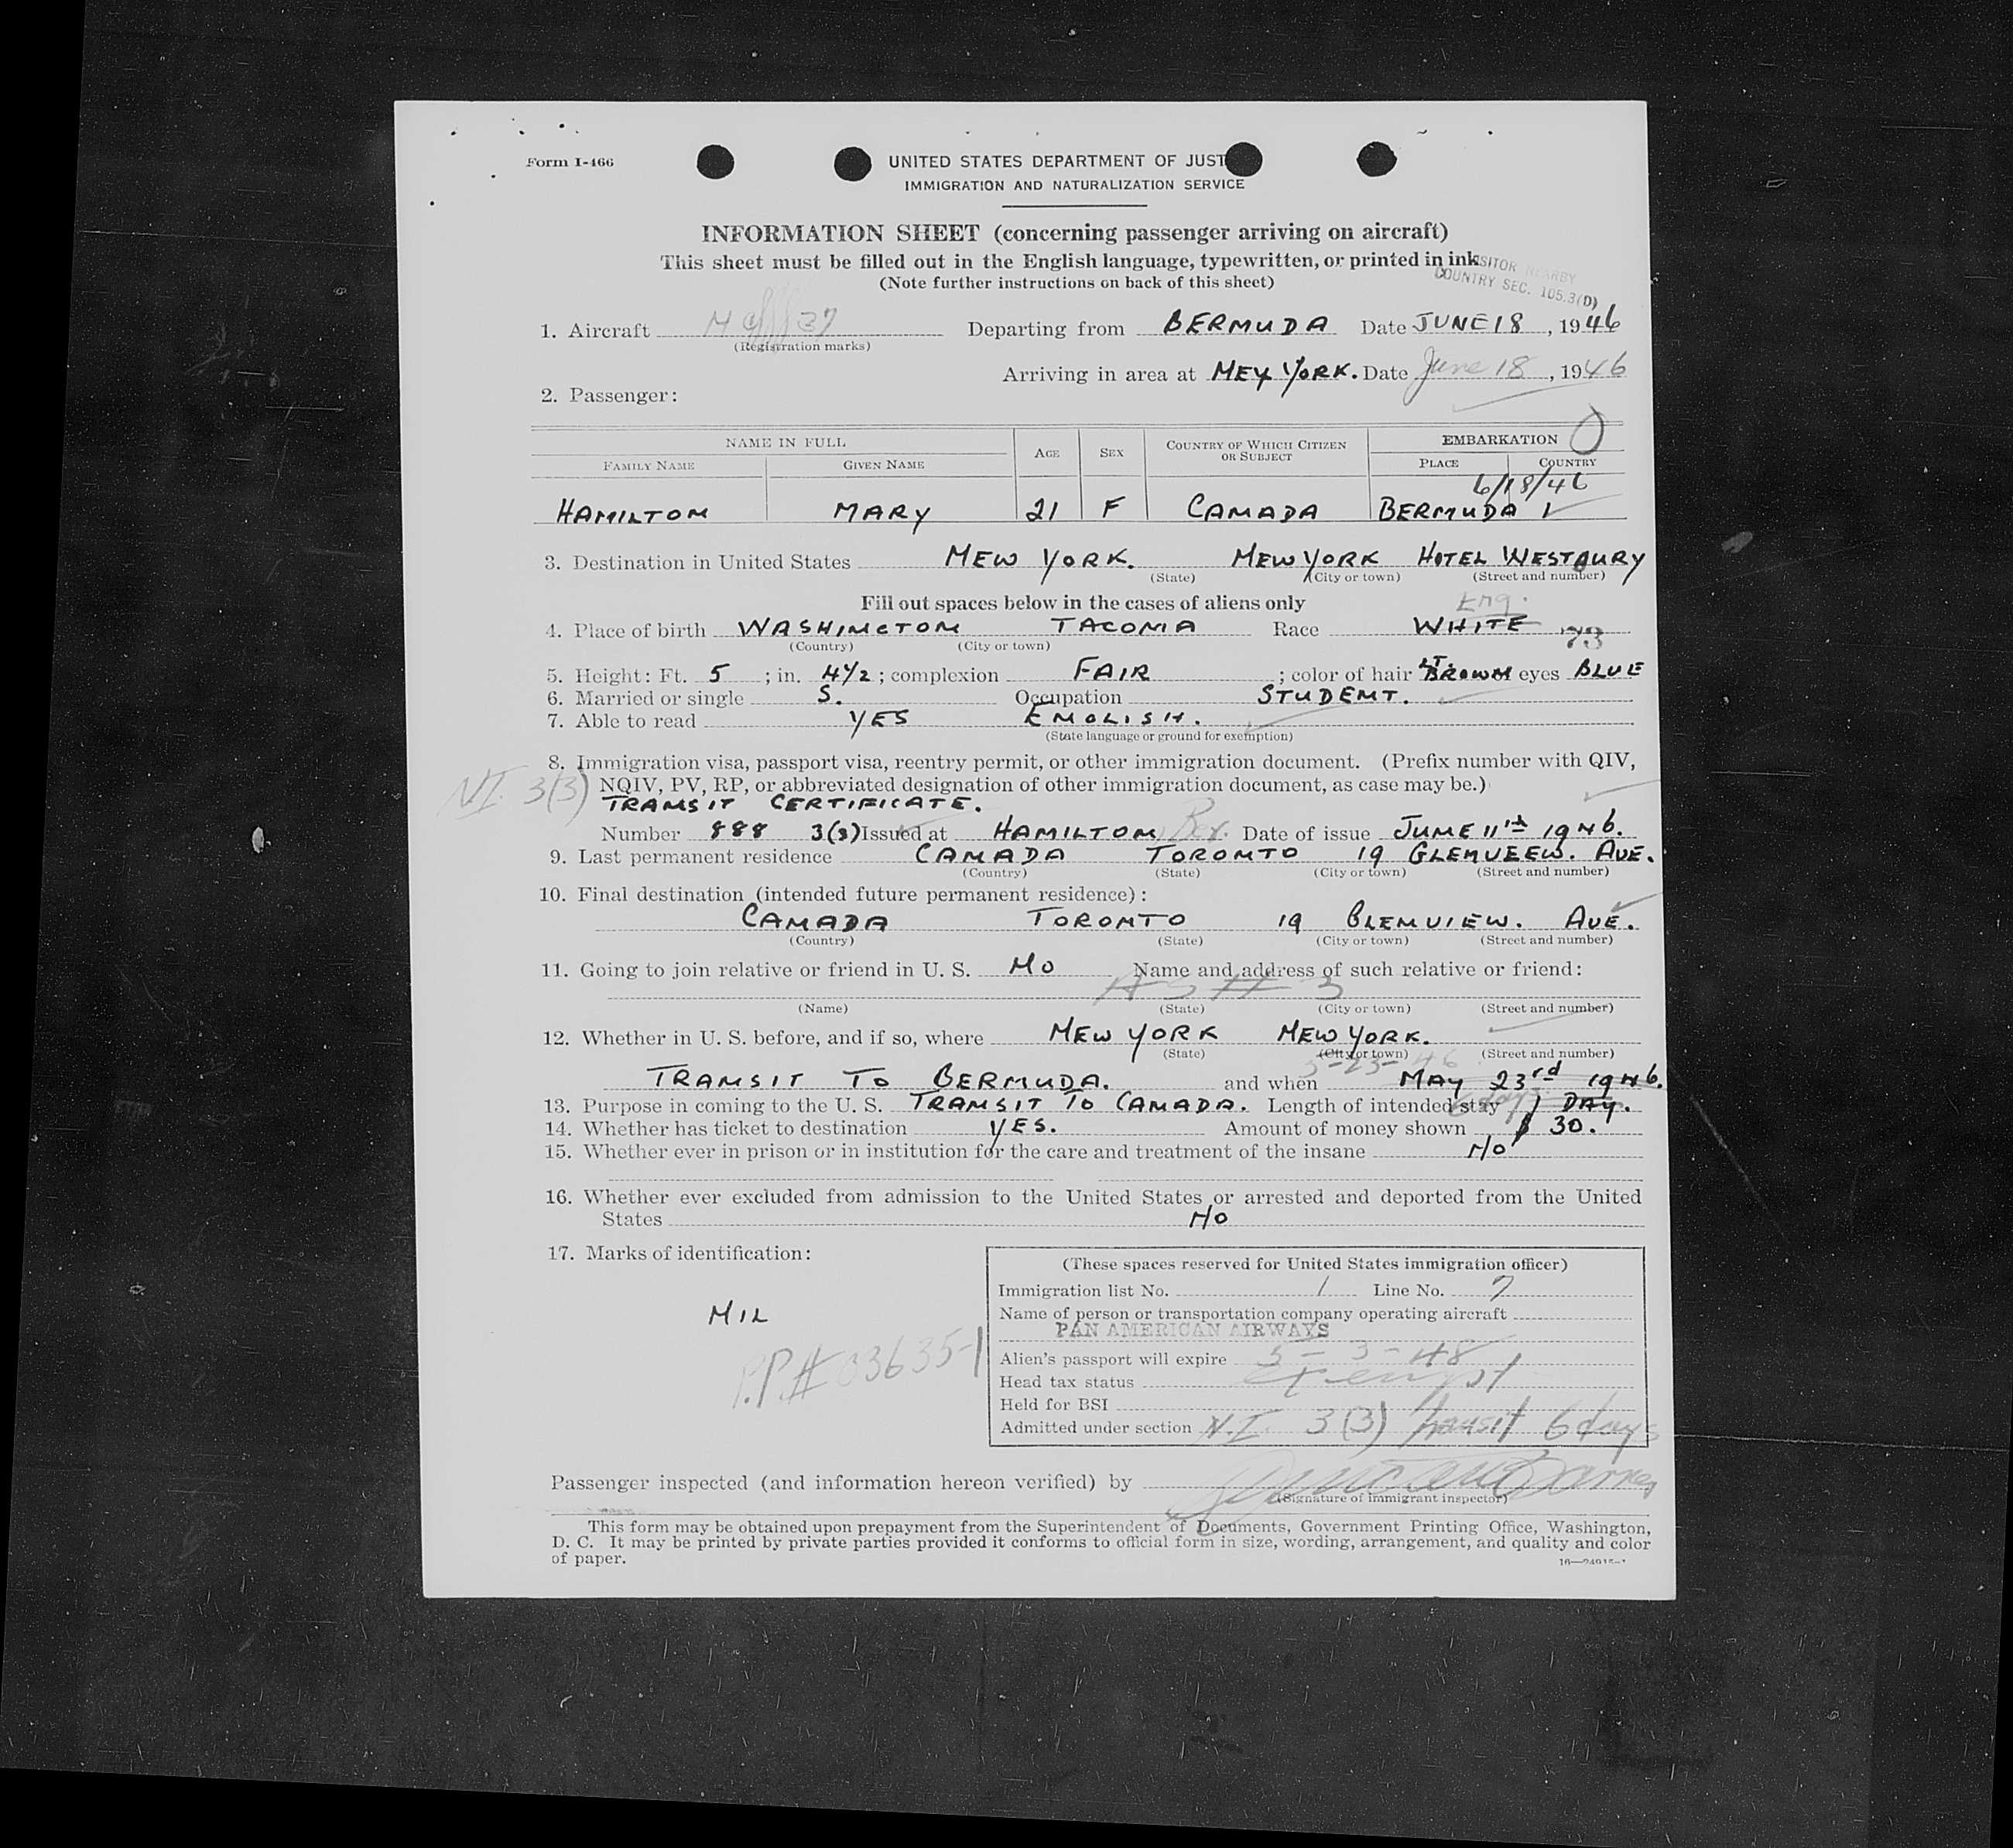 Form I-466
UNITED STATES DEPARTMENT OF JUST
IMMIGRATION AND NATURALIZATION SERVICE
INFORMATION SHEET (concerning passenger arriving on aircraft)
This sheet must be filled out in the English language, typewritten, or printed in ink
(Note further instructions on back of this sheet)
SITOR NEARBY
COUNTRY SEC. 105.3(D)
1. Aircraft Departing from BERMUDA Date JUNE 18, 1946
(Registration marks)
Arriving in area at NEW YORK. Date June 18, 1946
2. Passenger:
NAME IN FULL AGE SEX COUNTRY OF WHICH CITIZEN OR SUBJECT EMBARKATION
FAMILY NAME GIVEN NAME PLACE COUNTRY
6/18/46
HAMILTON MARY 21 F CANADA BERMUDA
3. Destination in United States NEW YORK. NEW YORK HOTEL WESTBURY
(State) (City or town) (Street and number)
Fill out spaces below in the cases of aliens only
Eng.
4. Place of birth WASHINGTON TACOMA Race WHITE 73
(Country) (City or town)
5. Height: Ft. 5; in. 4½; complexion FAIR; color of hair LT. BROWN eyes BLUE
6. Married or single S. Occupation STUDENT.
7. Able to read YES ENGLISH.
(State language or ground for exemption)
8. Immigration visa, passport visa, reentry permit, or other immigration document. (Prefix number with QIV,
N.I. 3(3) NQIV, PV, RP, or abbreviated designation of other immigration document, as case may be.)
TRANSIT CERTIFICATE.
Number 888 3(3) Issued at HAMILTON Ber. Date of issue JUNE 11th 1946.
9. Last permanent residence CANADA TORONTO 19 GLENVEEW. AVE.
(Country) (State) (City or town) (Street and number)
10. Final destination (intended future permanent residence):
CANADA TORONTO 19 GLENVIEW. AVE.
(Country) (State) (City or town) (Street and number)
11. Going to join relative or friend in U. S. NO Name and address of such relative or friend:
AS # 3
(Name) (State) (City or town) (Street and number)
12. Whether in U. S. before, and if so, where NEW YORK NEW YORK.
(State) (City or town) (Street and number)
5-23-46
TRANSIT TO BERMUDA. and when MAY 23rd 1946.
13. Purpose in coming to the U. S. TRANSIT TO CANADA. Length of intended stay 6 days 1 DAY.
14. Whether has ticket to destination YES. Amount of money shown $ 30.
15. Whether ever in prison or in institution for the care and treatment of the insane NO
16. Whether ever excluded from admission to the United States or arrested and deported from the United
States NO
17. Marks of identification:
NIL
P.P.# 03635-1
(These spaces reserved for United States immigration officer)
Immigration list No. 1 Line No. 7
Name of person or transportation company operating aircraft
PAN AMERICAN AIRWAYS
Alien's passport will expire 5-3-48
Head tax status exempt
Held for BSI
Admitted under section N.I. 3(3) transit 6 days
Passenger inspected (and information hereon verified) by
(Signature of immigrant inspector)
This form may be obtained upon prepayment from the Superintendent of Documents, Government Printing Office, Washington,
D. C. It may be printed by private parties provided it conforms to official form in size, wording, arrangement, and quality and color
of paper.